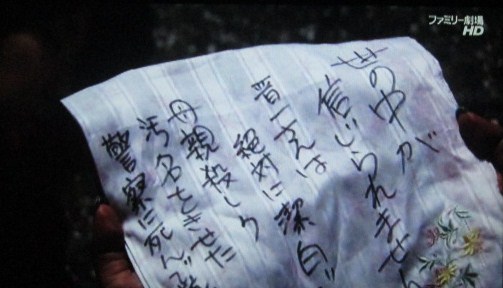 ファミリー劇場
HD
世の中が
信じられません
晋一さんは
絶対に潔白
母親殺しの
汚名をきせた
警察に死んで